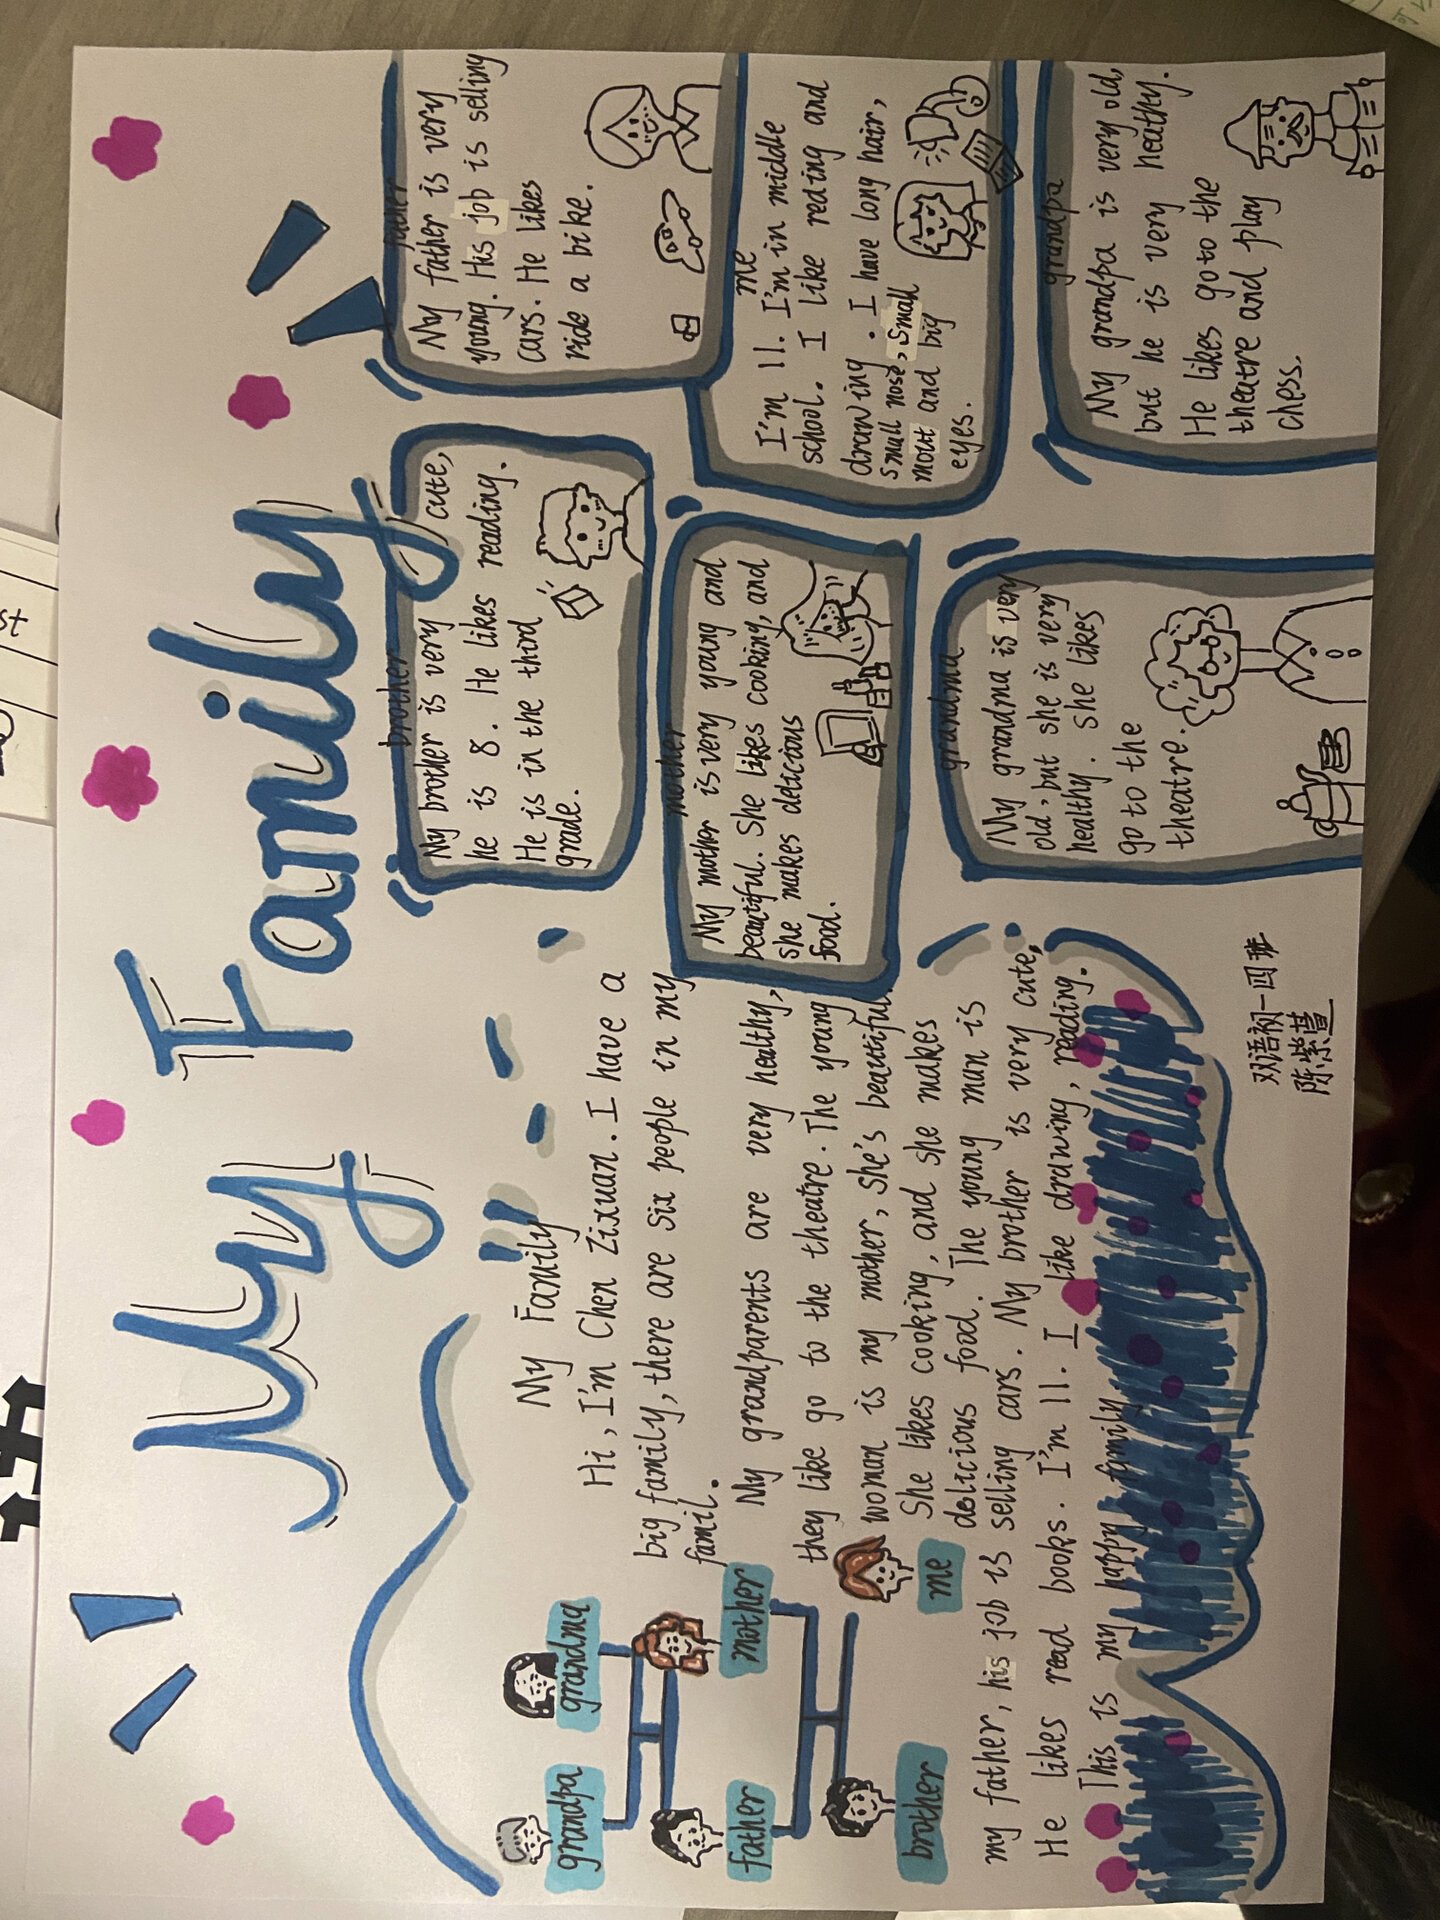 My Family
grandpa
grandma
father
mother
brother
me
My Family
Hi, I'm Chen Zixuan. I have a
big family, there are six people in my
famil.
My grandparents are very healthy,
they like go to the theatre. The young
woman is my mother, she's beautiful.
She likes cooking, and she makes
delicious food. The young man is
my father, his job is selling cars. My brother is very cute,
He likes read books. I'm 11. I like drawing, reading.
This is my happy family
brother
My brother is very cute,
he is 8. He likes reading.
He is in the third
grade.
father
My father is very
young. His job is selling
cars. He likes
ride a bike.
mother
My mother is very young and
beautiful. She likes cooking, and
she makes delicious
food.
me
I'm 11. I'm in middle
school. I like reding and
drawing. I have long hair,
small nose, small
mout and big
eyes.
grandma
My grandma is very
old, but she is very
healthy. she likes
go to the
theatre.
grandpa
My grandpa is very old,
but he is very heathy.
He likes go to the
theatre and play
chess.
双语初一四班
陈紫萱